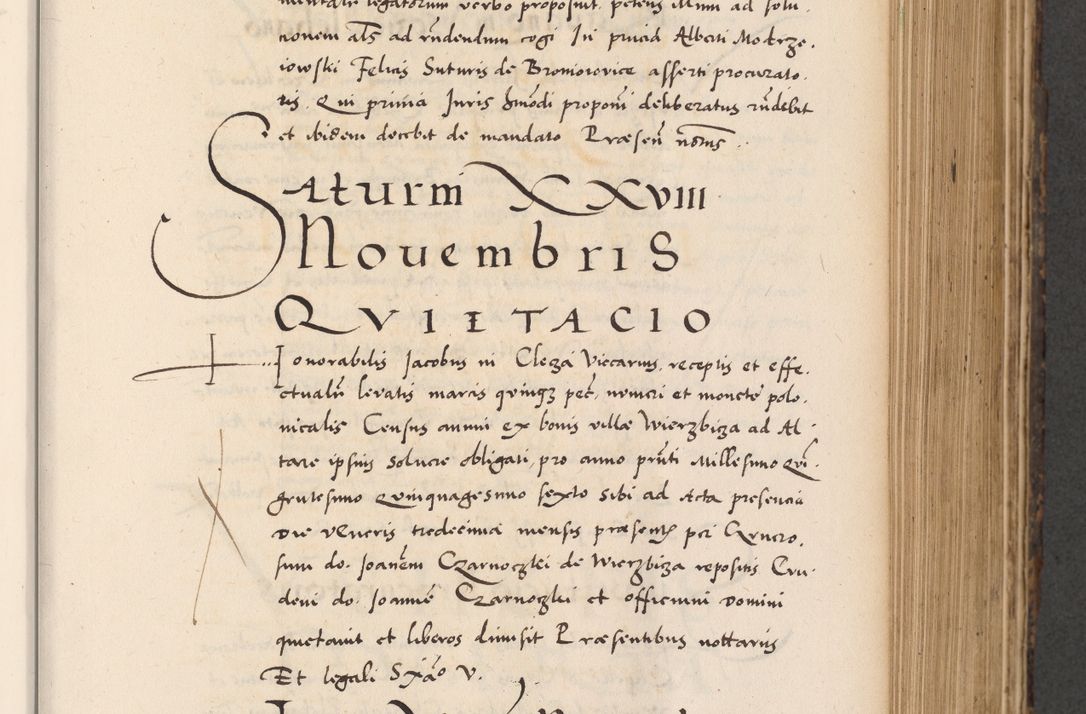 legatorum verbo proposuit. petens illum ad solu
tionem als ad rñdendum cogi In pñcia Alberti Modrze.
iowski Felicis Suturis de Bromoiovice asserti procurato.
ris. Qui primia Iuris hmōdi proponi deliberatus rñdebit
et ibidem docebit de mandato Præsen nõtus.
Saturni XXVIII
NovembriS
QVIETACIO
Honorabilis Jacobus in Vicarius, receptis et effe.
ctualr levatis marcis quinqz pec. numeri et monete polo.
nicalis Census annui ex bonis villæ Wierzbiza ad Al-
tare ipsius solucre obligati, pro anno prñti Millesimo Qui.
gentesimo Quinquagesimo sexto sibi ad Acta presencia
Die Veneris tredecima mensis præsentis per
sum do. Joanem Czarnoczki de Wierzbiza repositis Eun-
dem do. Joannē Czarnoczki et officium Domini
quietavit et liberos dimisit Præsentibus nottariis
Et legali V.